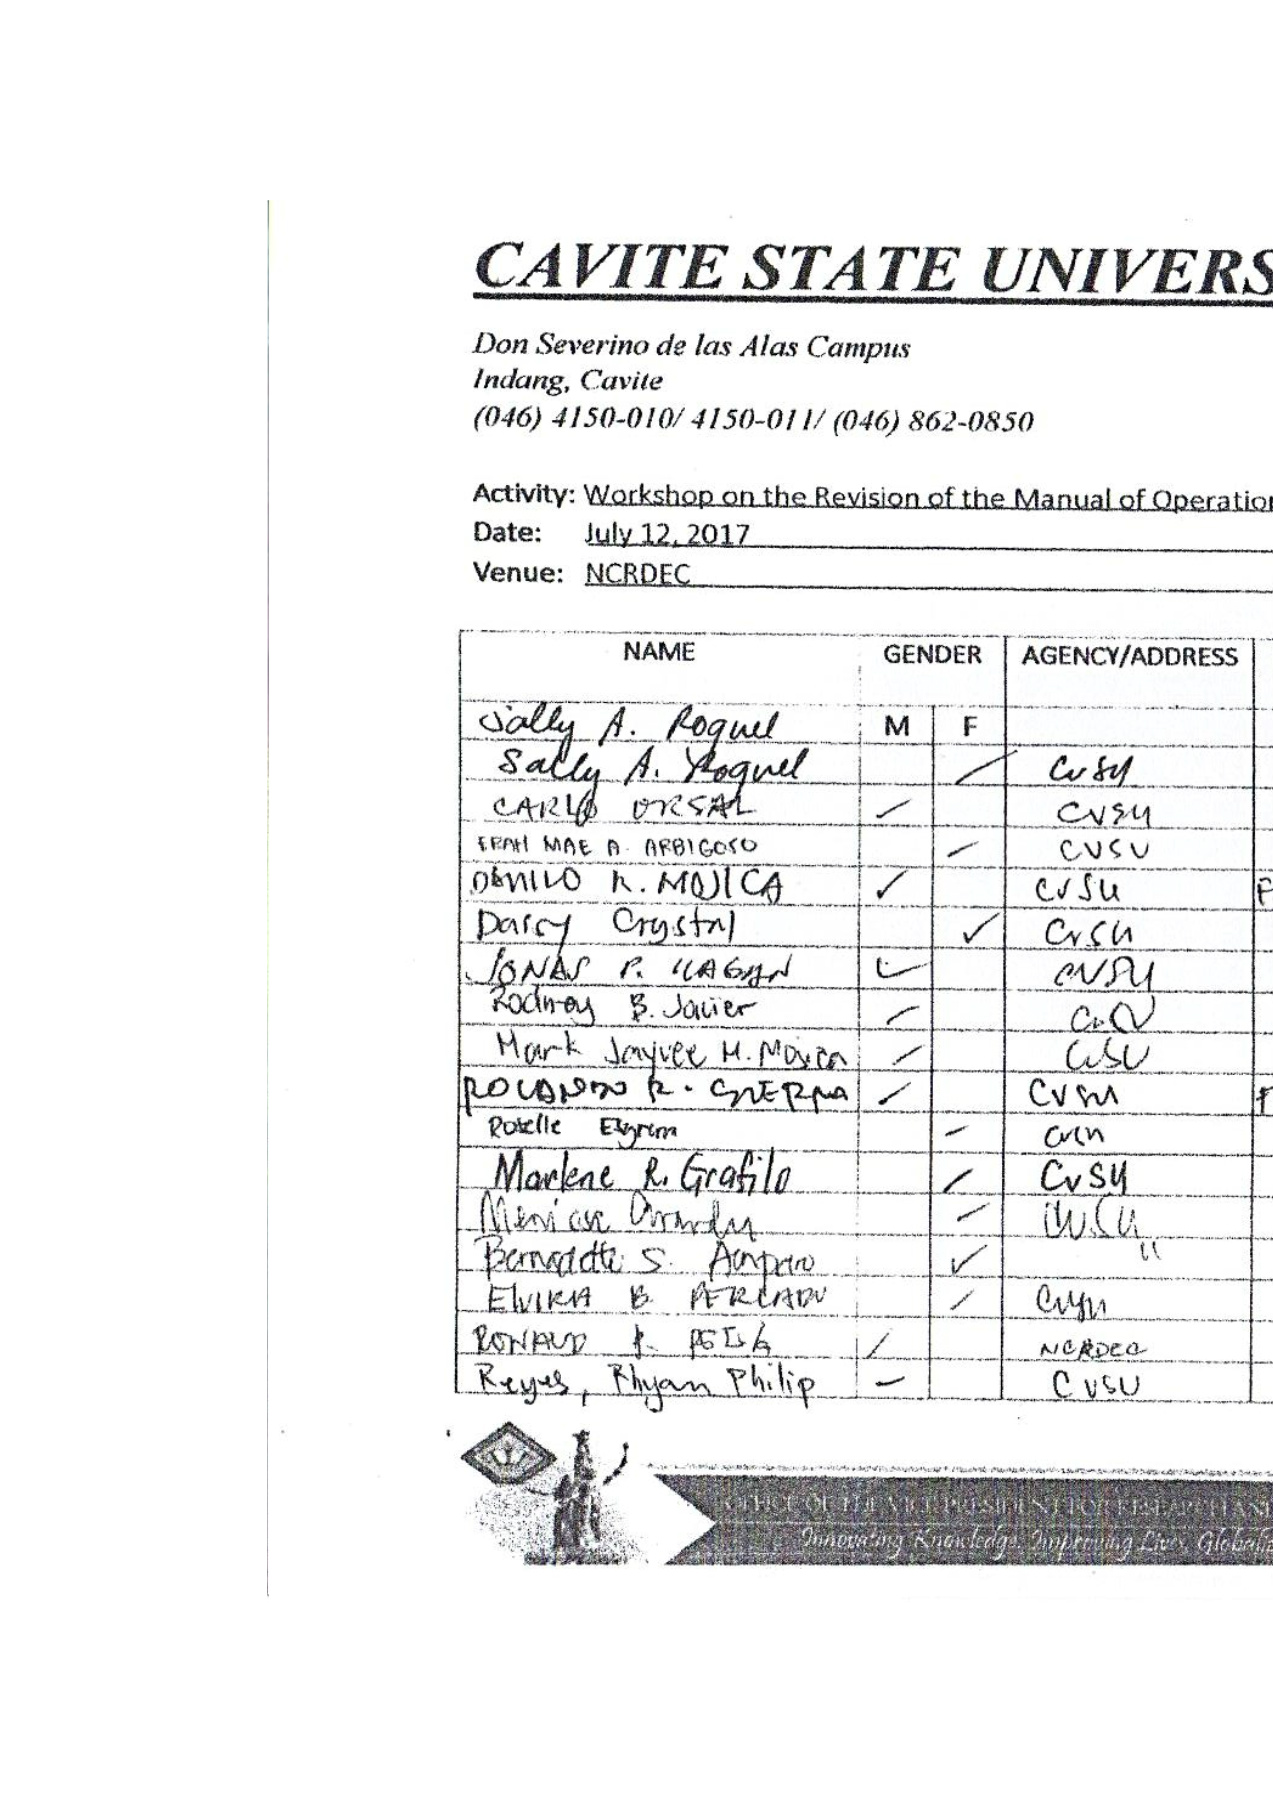 CAVITE STATE UNIVERS
Don Severino de las Alas Campus
Indang, Cavite
(046) 4150-010/ 4150-011/ (046) 862-0850
Activity: Workshop on the Revision of the Manual of Operation
Date: July 12, 2017
Venue: NCRDEC
NAME GENDER AGENCY/ADDRESS
Sally A. Roquel M F
Sally A. Roquel CvSU
CARLO ORSAL CVSU
MAE A. ARBIGOSO CVSU
DANILO R. MOJICA CVSU
Darcy Crystal CVSU
JONAS P. CVSU
Rodney B. Javier
Mark Jayvee M. Mojica CVSU
ROLANDO R. CVSU
Roselle
Marlene R. Grafilo CvSU
CVSU
Bernadette S. Ampero "
ELVIRA B. MERCADO
RONALD P. PEÑA NCRDEC
Reyes, Rhyan Philip CVSU
OFFICE OF THE VICE PRESIDENT FOR RESEARCH AN
Innovating Knowledge, Improving Lives, Globali